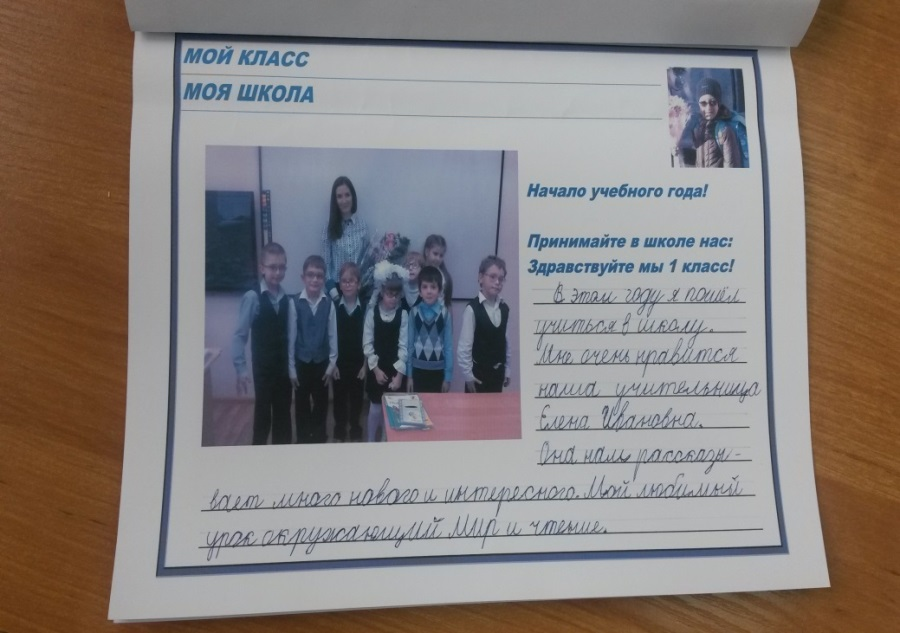 МОЙ КЛАСС
МОЯ ШКОЛА
Начало учебного года!
Принимайте в школе нас:
Здравствуйте мы 1 класс!
В этом году я пошёл
учиться в школу.
Мне очень нравится
наша учительница
Елена Ивановна.
Она нам рассказы-
вает много нового и интересного. Мой любимый
урок окружающий мир и чтение.